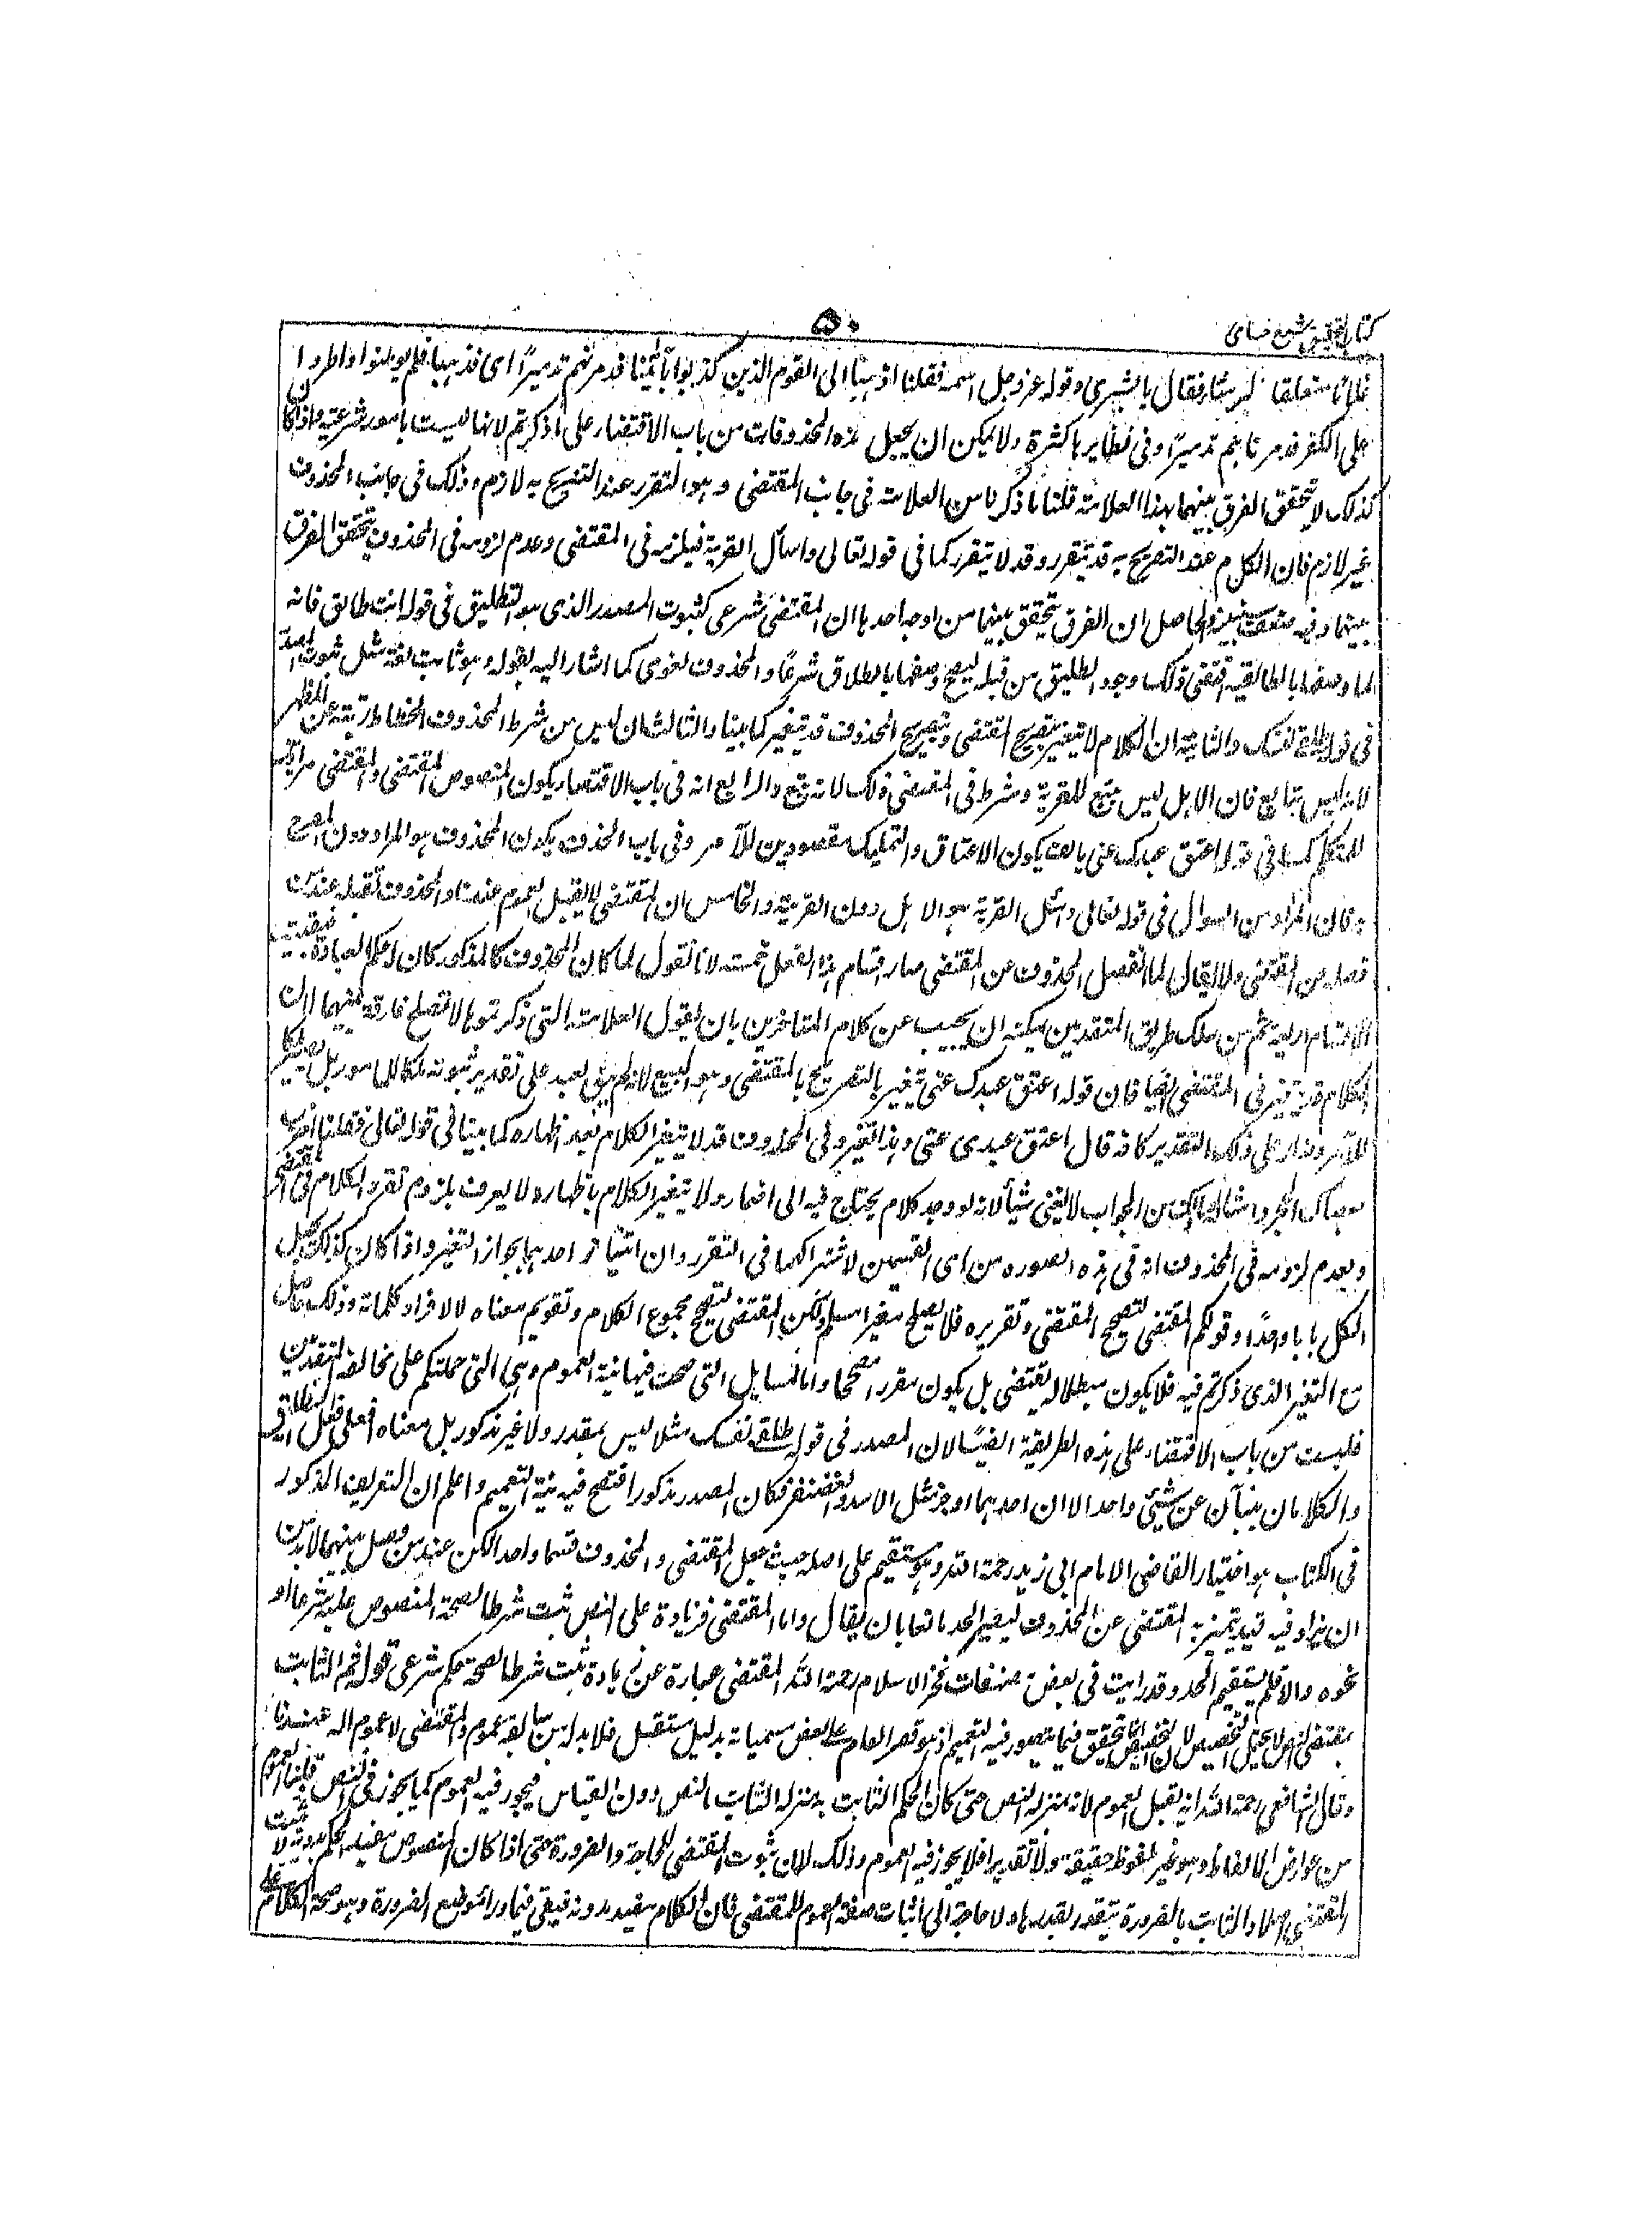 كتاب التحقيق شرح حسامى
٥٠
متعلقا فقال يا بشرى وقوله عز وجل اسمه فقلنا اذهبا الى القوم الذين كذبوا بآياتنا فدمرنهم تدميرًا اى فذهبا فلم يؤمنوا واصروا
على الكفر فدمرناهم تدميرًا وفى نظايرها كثرة ولا يمكن ان يجعل هذه المحذوفات من باب الاقتضاء على ما ذكرتم لانها ليست بامور شرعية واذا كان
كذلك لا يتحقق الفرق بينهما بهذا العلامة قلنا ما ذكرنا من العلامة فى جانب المقتضى وهو التقرر عند التصريح به لازم وذلك فى جانب المحذوف
غير لازم فان الكلام عند التصريح به قد يتقرر وقد لا يتقرر كما فى قوله تعالى واسأل القرية فبلزومه فى المقتضى وعدم لزومه فى المحذوف يتحقق الفرق
بينهما وفيه ضعف والحاصل ان الفرق يتحقق بينهما من اوجه احدها ان المقتضى شرعى كثبوت المصدر الذى هو التطليق فى قوله انت طالق فانه
لما وصفها بالطالقية اقتضى ذلك وجود التطليق من قبله ليصح وصفها بالطلاق شرعًا والمحذوف لغوى كما اشار اليه بقوله وهو ثابت لغة مثل ثبوت المصدر
فى قوله طلقى نفسك والثانية ان الكلام لا يتغير بتصريح المقتضى وبتصريح المحذوف قد يتغير كما بينا والثالث ان ليس من شرط المحذوف انحطاط رتبته عن المظهر
لانه ليس بتابع فان الاهل ليس بتبع للقرية وشرط فى المقتضى ذلك لانه تبع والرابع انه فى باب الاقتضاء يكون المنصوص المقتضى والمقتضى مرادين
للمتكلم كما فى قوله اعتق عبدك عنى بالف يكون الاعتاق والتمليك مقصودين للآمر وفى باب الحذف يكون المحذوف هو المراد دون المصرح
به فان المراد من السوال فى قوله تعالى واسئل القرية هو الاهل دون القرية والخامس ان المقتضى لا يقبل العموم عندنا والمحذوف يقبله عند من
فصله من المقتضى ولا يقال لما انفصل المحذوف عن المقتضى صار اقسام هذا الفصل خمسة لانا نقول لما كان المحذوف كالمذكور كان له حكم العبارة فبقيت
الاقسام اربعة ثم من سلك طريق المتقدمين يمكنه ان يجيب عن كلام المتاخرين بان يقول العلامة التى ذكرتموها لا تصلح فارقة بينهما لان
الكلام قد يتغير فى المقتضى ايضا فان قوله اعتق عبدك عنى يتغير بالتصريح بالمقتضى وهو البيع لانه لم يبق العبد على تقدير ثبوته ملكا للمامور بل يصير ملكا
للآمر وصار على ذلك التقدير كانه قال اعتق عبدى عنى وهذا تغير وفى المحذوف قد لا يتغير الكلام بعد اظهاره كما بينا فى قوله تعالى فقلنا اضرب
بعصاك الحجر وامثاله من الجواب لا يغنى شيأ لانه لو وجد كلام يحتاج فيه الى اضمار ولا يتغير الكلام باظهاره لا يعرف بلزوم تقرر الكلام فى المقتضى
وبعدم لزومه فى المحذوف انه فى هذه الصورة من اى القسمين لاشتراكهما فى التقرر وان امتياز احدهما بجواز التغير واذا كان كذلك يجعل
الكل بابا واحدًا وقولكم المقتضى لتصحيح المقتضى وتقريره فلا يصلح مغيرا مسلم ولكن المقتضى لتصحيح مجموع الكلام وتقويم معناه لا لافراد كلماته وذلك حاصل
مع التغير الذى ذكرتم فيه فلا يكون مبطلا للمقتضى بل يكون مقررا مصححا واما المسايل التى صحت فيها نية العموم وهى التى حملتكم على مخالفة المتقدمين
فليست من باب الاقتضاء على هذه الطريقة ايضًا لان المصدر فى قوله طلقى نفسك مثلا ليس بمقدر ولا غير مذكور بل معناه افعلى فعل التطليق
والكلامان ينبآن عن شيئ واحد الا ان احدهما اوجز مثل الاسد والغضنفر فكان المصدر مذكورا فتصح فيه نية التعميم واعلم ان التعريف المذكور
فى الكتاب هو اختيار القاضى الامام ابى زيد رحمة الله وهو مستقيم على اصله حيث جعل المقتضى والمحذوف قسما واحدا لكن عند من فصل بينهما لا بد من
ان يزاد فيه قيد يتميز به المقتضى عن المحذوف ليصير الحد مانعا بان يقال واما المقتضى فزيادة على النص ثبت شرطا لصحة المنصوص عليه شرعا او
نحوه والا فلم يستقيم الحد وقد رايت فى بعض مصنفات فخر الاسلام رحمة الله المقتضى عبارة عن زيادة ثبت شرطا لصحة حكم شرعى قوله ثم الثابت
بمقتضى النص لا يحتمل التخصيص لان التخصيص انما يتحقق فيما يتصور فيه التعميم اذ هو قصر العام على بعض مسمياته بدليل مستقل فلا بد له من سابقة عموم والمقتضى لا عموم له عندنا
وقال الشافعى رحمة الله انه يقبل العموم لانه بمنزلة النص حتى كان الحكم الثابت به بمنزلة الثابت بالنص دون القياس فيجوز فيه العموم كما يجوز فى النص قلنا العموم
من عوارض الالفاظ وهو غير ملفوظ حقيقة ولا تقديرا فلا يجوز فيه العموم وذلك لان ثبوت المقتضى للحاجة والضرورة حتى اذا كان المنصوص مفيدا للحكم بدونه لا يثبت
المقتضى اصلا والثابت بالضرورة يتقدر بقدرها ولا حاجة الى اثبات صفة العموم للمقتضى فان الكلام مفيد بدونه فيبقى فيما وراء موضع الضرورة وهو صحة الكلام على